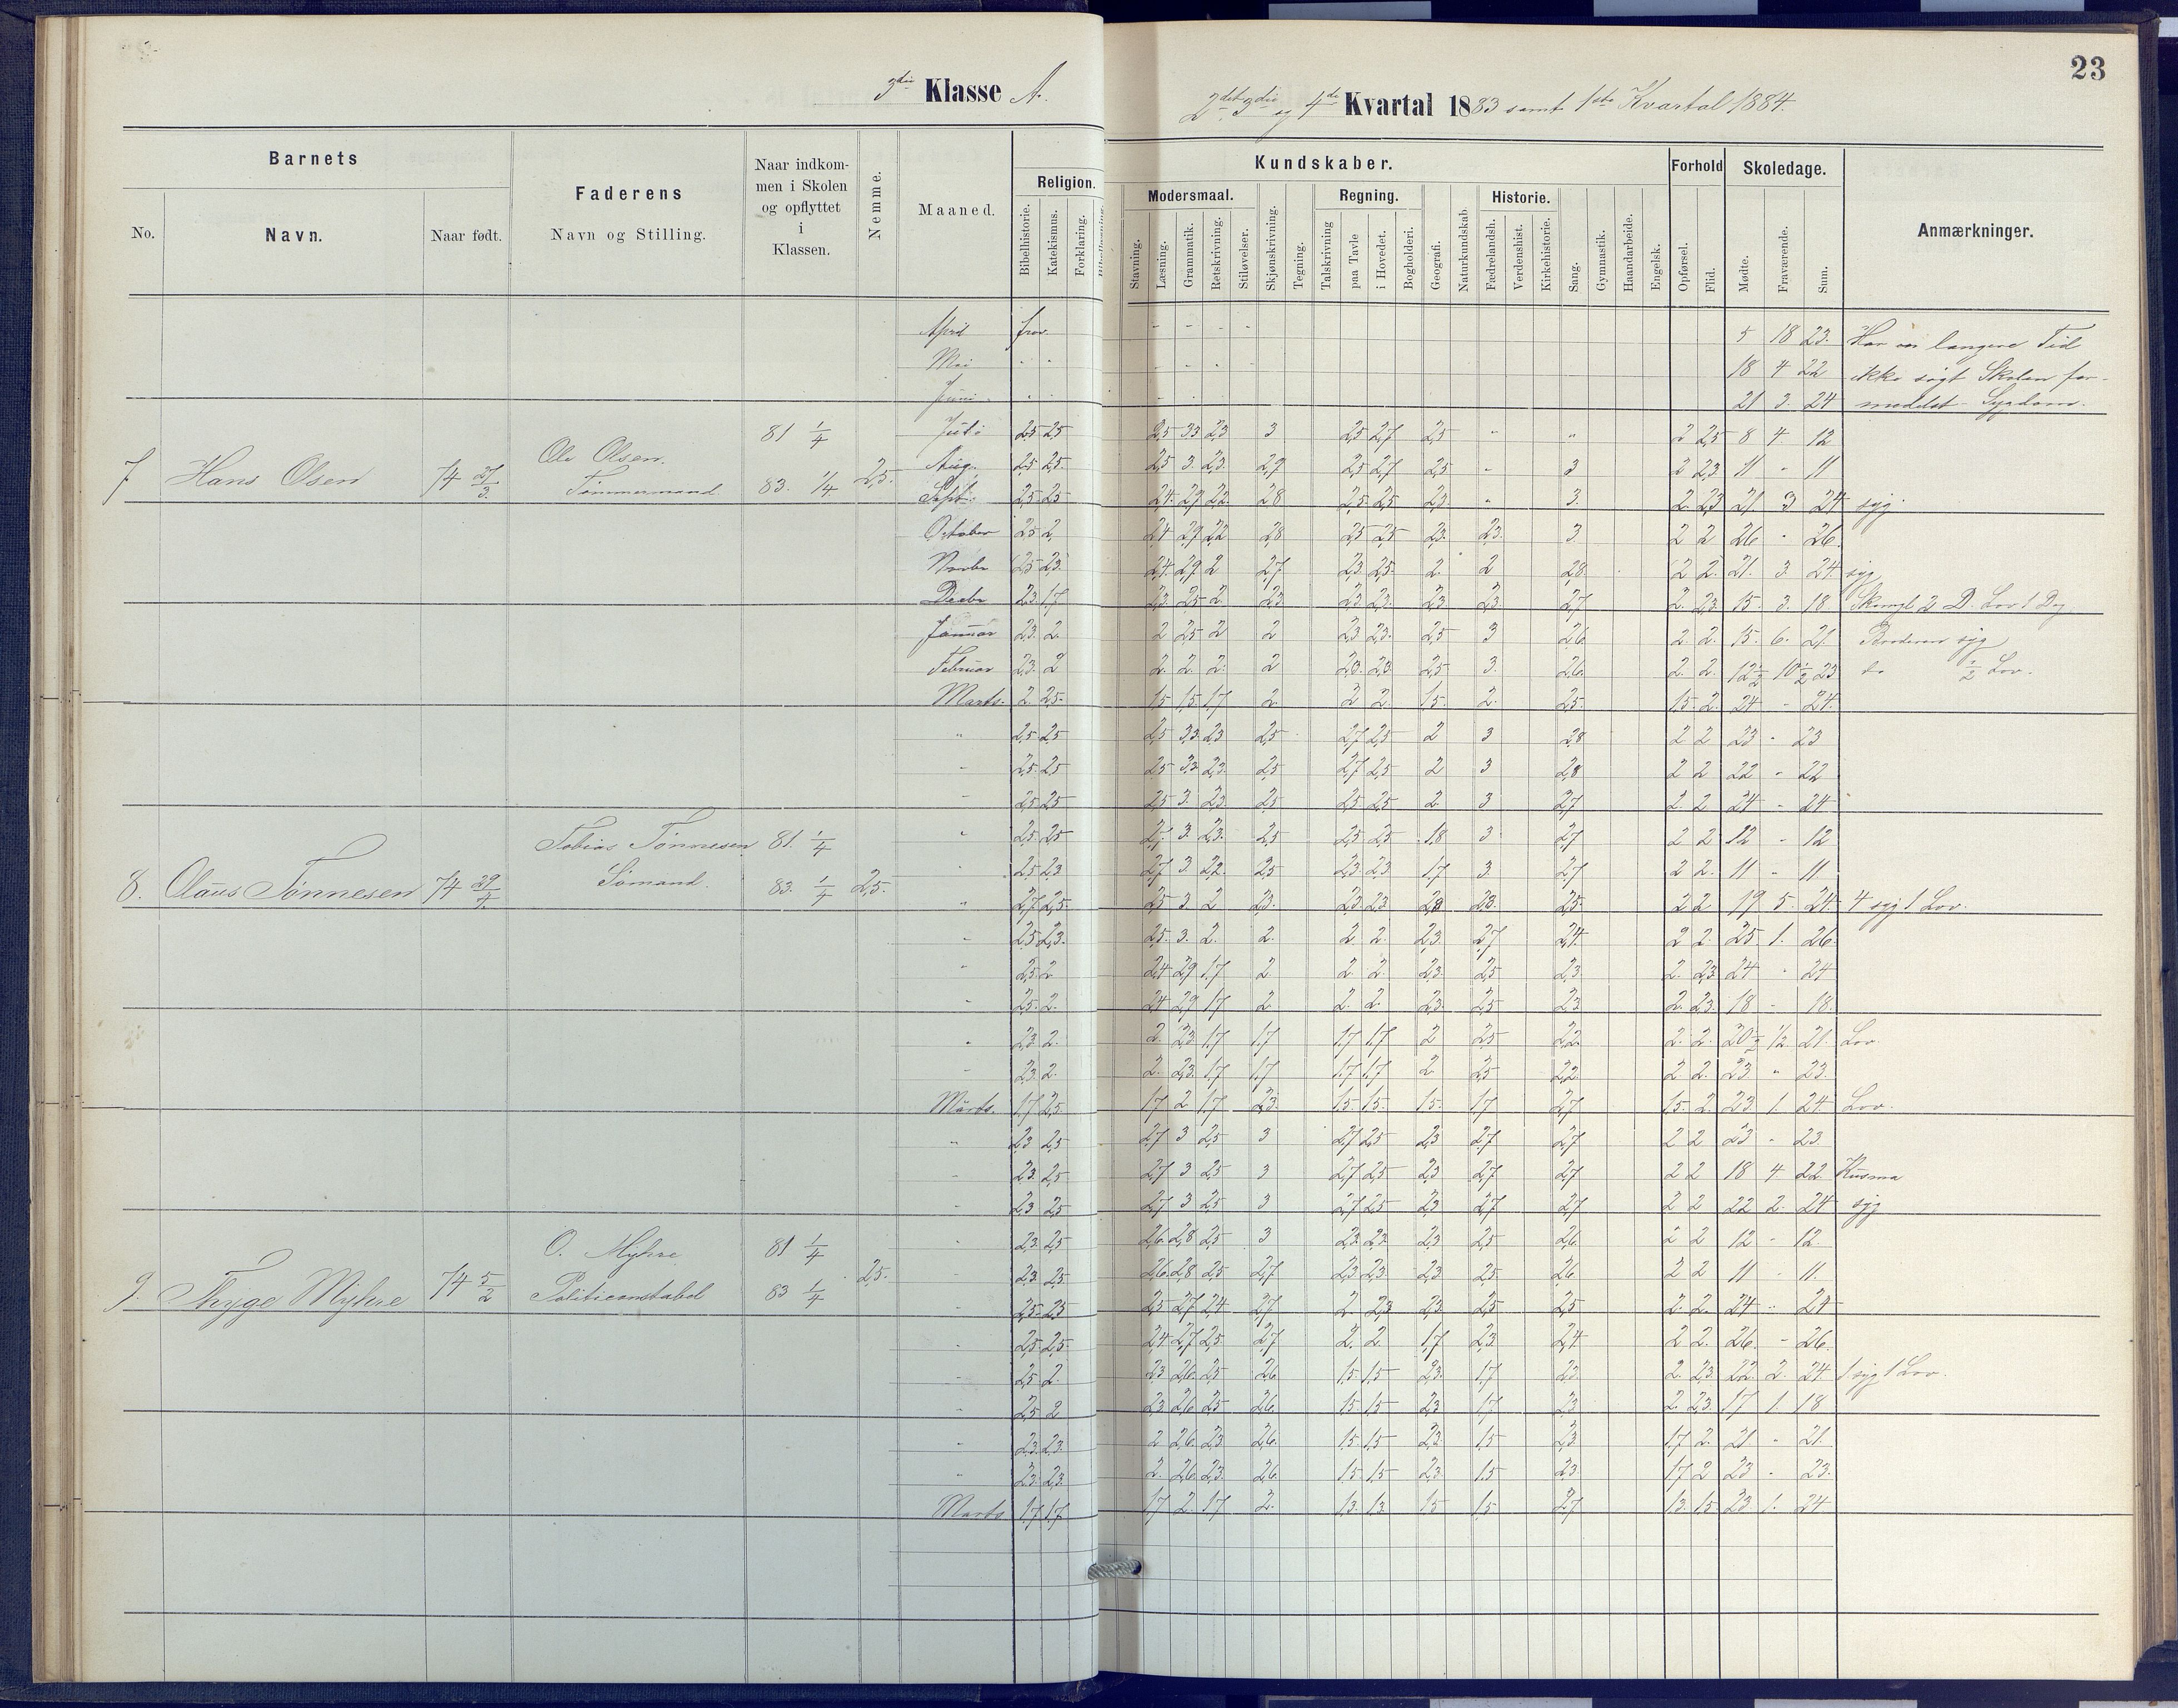 23
3die Klasse A.
2det 3die og 4de Kvartal 1883 samt 1ste Kvartal 1884.
Barnets
Faderens
Naar indkom-
men i Skolen
og opflyttet
i
Klassen.
Nemme.
Maaned.
Religion.
Kundskaber.
Forhold
Skoledage.
Anmærkninger.
No.
Navn.
Naar født.
Navn og Stilling.
Bibelhistorie.
Katekismus.
Forklaring.
Bibellæsning.
Modersmaal.
Regning.
Historie.
Stavning.
Læsning.
Grammatik.
Retskrivning.
Stiløvelser.
Skjønskrivning.
Tegning.
Talskrivning
paa Tavle
i Hovedet.
Bogholderi.
Geografi.
Naturkundskab.
Fædrelandsh.
Verdenshist.
Kirkehistorie.
Sang.
Gymnastik.
Haandarbeide.
Engelsk.
Opførsel.
Flid.
Mødte.
Fraværende.
Sum.
April frav. - - - - 5 18 23. Har en længere Tid
Mai " " - - - 18 4 22 ikke søgt Skolen for-
Juni " " - - - 21 3. 24 medelst Sygdom.
81 1/4 Juli 2,5 2,5 2,5 3,3 2,3 3 2,5 2,7 2,5 " " 2 2,5 8 4 12
Ole Olsen.
7 Hans Olsen 74 27/3 Tømmermand 83. 1/4 2,5.
Aug. 2,5 2,5. 2,5 3. 2,3. 2,9 2,5 2,7 2,5 " 3 2 2,3 11 " 11
Sept. 2,5. 2,5 2,4. 2,9 2,2. 2,8 2,5. 2,5 2,3. " 3. 2. 2,3 21. 3 24 syg
October 2,5 2, 2,4 2,9 2,2 2,8 2,5 2,5 2,3. 2,3. 3. 2 2 26 " 26.
Novbr 2,5 2,3. 2,4. 2,9 2 2,7 2,3. 2,5. 2. 2 2,8. 2 2. 21. 3. 24. syg
Decbr 2,3. 1,7 2,3. 2,5 2. 2,3 2,3. 2,3. 2,3. 2,3. 2,7 2. 2,3. 15. 3. 18 Skingl 2 D. Lov 1 Dg
Januar 2,3. 2. 2 2,5 2 2 2,3 2,3. 2,5 3 2,6 2. 2. 15. 6. 21. Broderen syg
Februar 2,3. 2 2. 2. 2. 2 2,3. 2,3 2,5 3. 2,6. 2. 2. 12 1/2 10 1/2 23 do 1/2 Lov.
Marts. 2. 2,5. 1,5 1,5. 1,7 2. 2 2. 1,5. 2. 2,5. 1,5. 2. 24 - 24.
" 2,5 2,5 2,5 3,3. 2,3 2,5 2,7 2,5 2 3 2,8 2 2 23 " 23
" 2,5. 2,5 2,5 3,3 2,3. 2,5 2,7 2,5 2 3 2,8 2 2 22 " 22
" 2,5 2,5 2,5 3. 2,3. 2,5 2,5. 2,5 2. 3 2,7 2. 2 24 - 24
" 2,5 2,5 2,7. 3. 2,3. 2,5 2,5. 2,5 1,8 3 2,7 2 2 12 - 12
Tobias Tønnesen 81. 1/4
8. Olaus Tønnesen 74 29/4 Sømand. 83. 1/4 2,5.
" 2,5 2,3 2,7 3. 2,2. 2,5 2,3. 2,3 1,7 3 2,7 2 2. 11 " 11
" 2,7 2,5. 2,5 3. 2 2,3. 2,3. 2,3. 2,3 2,3. 2,5. 2 2 19 5. 24. 4 syg 1 Lov.
" 2,5 2,3. 2,5. 3. 2. 2. 2. 2. 2,3. 2,7 2,4. 2 2. 25 1. 26.
" 2,5. 2 2,4 2,9 1,7 2 2. 2. 2,3. 2,5 2,3 2. 2,3. 24 " 24
" 2,5. 2. 2,4 2,9 1,7 2. 2. 2. 2,3. 2,5 2,3 2. 2,3. 18 - 18.
" 2,3 2. 2. 2,3 1,7 1,7 1,7 1,7 2 2,5 2,2. 2. 2. 20 1/2 1/2 21. Lov.
" 2,3. 2. 2. 2,3. 1,7 1,7 1,7 1,7 2. 2,5 2,2. 2. 2. 23. " 23.
Marts. 1,7 2,5. 1,7 2 1,7 2,3. 1,5. 1,5. 1,5. 1,7 2,7 1,5. 2. 23. 1. 24. Lov.
" 2,3 2,5 2,7 3 2,5 3 2,7 2,5 2,3 2,7 2,7 2 2 23 " 23
" 2,3 2,5 2,7 3 2,5 3 2,7 2,5 2,3 2,7 2,7 2 2 18 4 22 Kusma
" 2,3 2,5 2,7 3 2,5 3 2,7 2,5 2,3 2,7 2,7 2 2 22 2. 24 syg
" 2,3. 2,5 2,6. 2,8 2,5 3 2,3. 2,3. 2,3 2,5 2,6 2 2 12 - 12.
O. Myhre 81 1/4
9. Thyge Myhre 74 5/2 Politiconstabel 83 1/4 2,5.
" 2,3. 2,5 2,6. 2,8 2,5 2,7 2,3 2,3. 2,3. 2,5. 2,6. 2 2 11 - 11.
" 2,5. 2,5 2,5 2,7 2,4 2,7 2. 2,3 2,3. 2,5 2,5 2. 2. 24 " 24
" 2,5. 2,5. 2,4. 2,7 2,5 2,7 2. 2. 1,7 2,3. 2,4 2 2. 26. - 26.
" 2,5 2. 2,3 2,6. 2,5 2,6 1,5. 1,5 2,3. 1,7 2,3. 2. 2,3. 22. 2. 24 1 syg 1 Lov.
" 2,5 2 2,3. 2,6 2,5 2,6. 1,5 1,5 2,3 1,7 2,3 2. 2,3. 17 1. 18
" 2,3. 2,3. 2 2,6. 2,3. 2,6. 1,5. 1,5 2,3 1,5 2,3. 1,7 2. 21 " 21.
" 2,3. 2,3. 2. 2,6. 2,3. 2,6. 1,5. 1,5 2,3. 1,5 2,3. 1,7 2 23 " 23.
Marts 1,7 1,7 1,7 2. 1,7 2. 1,3. 1,3. 1,5 1,5. 2,7 1,3. 1,5. 23. 1. 24